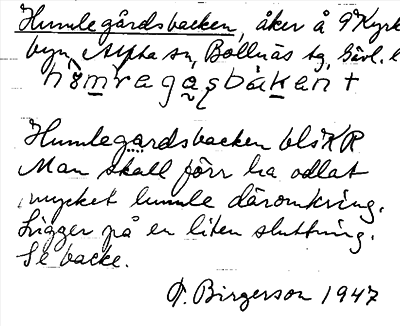 Humlegårdsbacken, åker å 9 Kyrk
byn Alfta sn, Bollnäs tg, Gävl. l
Humlegårdsbacken bls KR
Man skall förr ha odlat
mycket humle däromkring.
Ligger på en liten sluttning.
Se backe.
Birgerson 1947